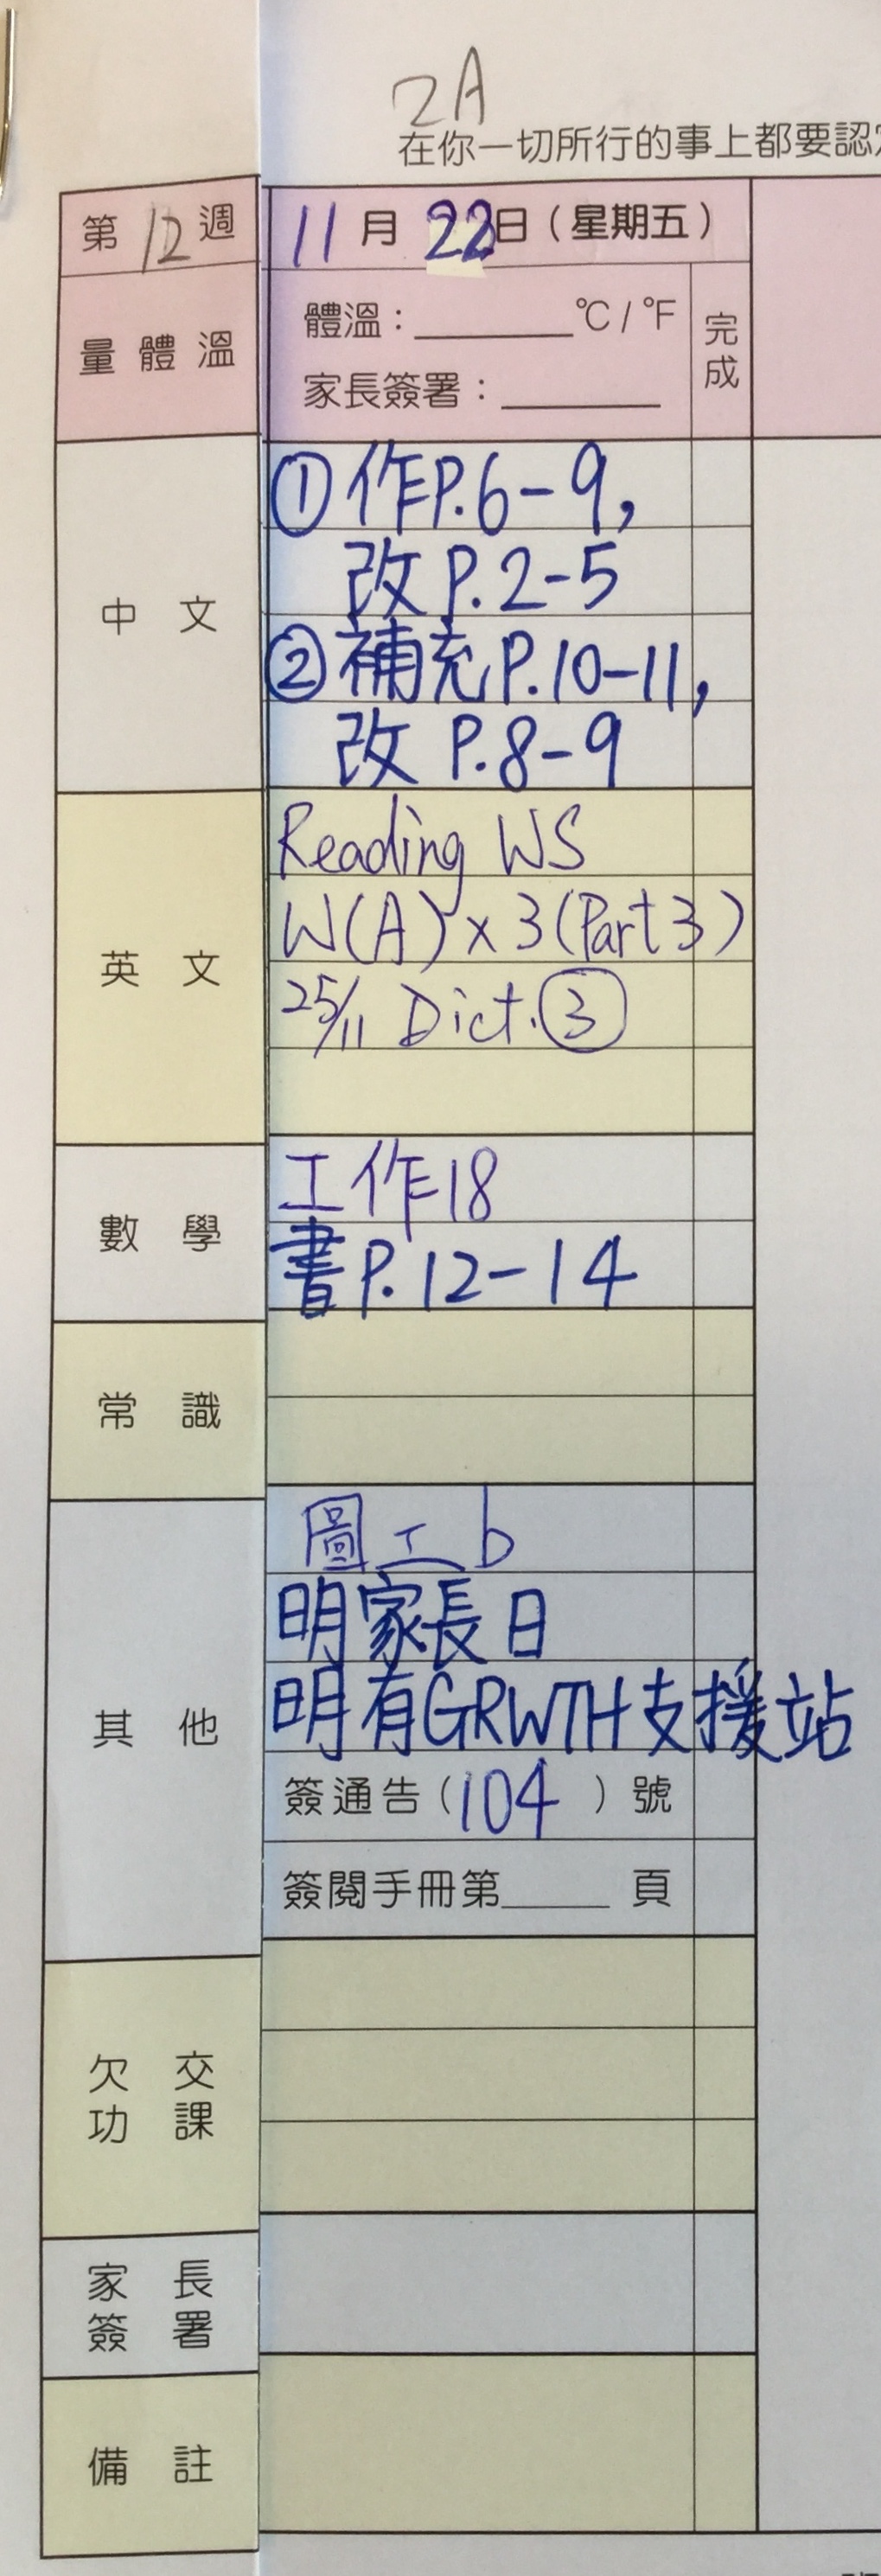 2A
在你一切所行的事上都要認
第 12 週
11 月 22日（星期五）
量 體 溫
體溫：________°C / °F
家長簽署：________
完成
中 文
① 作P.6-9,
改P.2-5
② 補充P.10-11,
改 P.8-9
英 文
Reading WS
W(A) x 3 (Part 3)
25/11 Dict. ③
數 學
工作18
書P.12-14
常 識
其 他
圖工 b
明家長日
明有GRWTH支援站
簽通告（104）號
簽閱手冊第_____ 頁
欠 交
功 課
家 長
簽 署
備 註